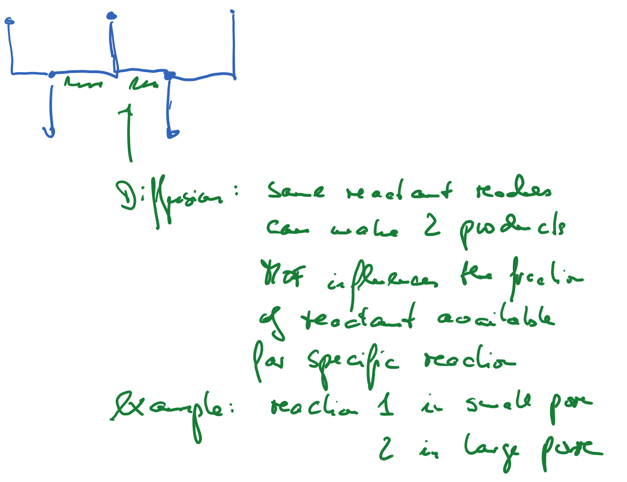 Diffusion: same reactant reaches
can make 2 products
influences the fraction
of reactant available
for specific reaction
Example: reaction 1 in small pore
2 in large pore